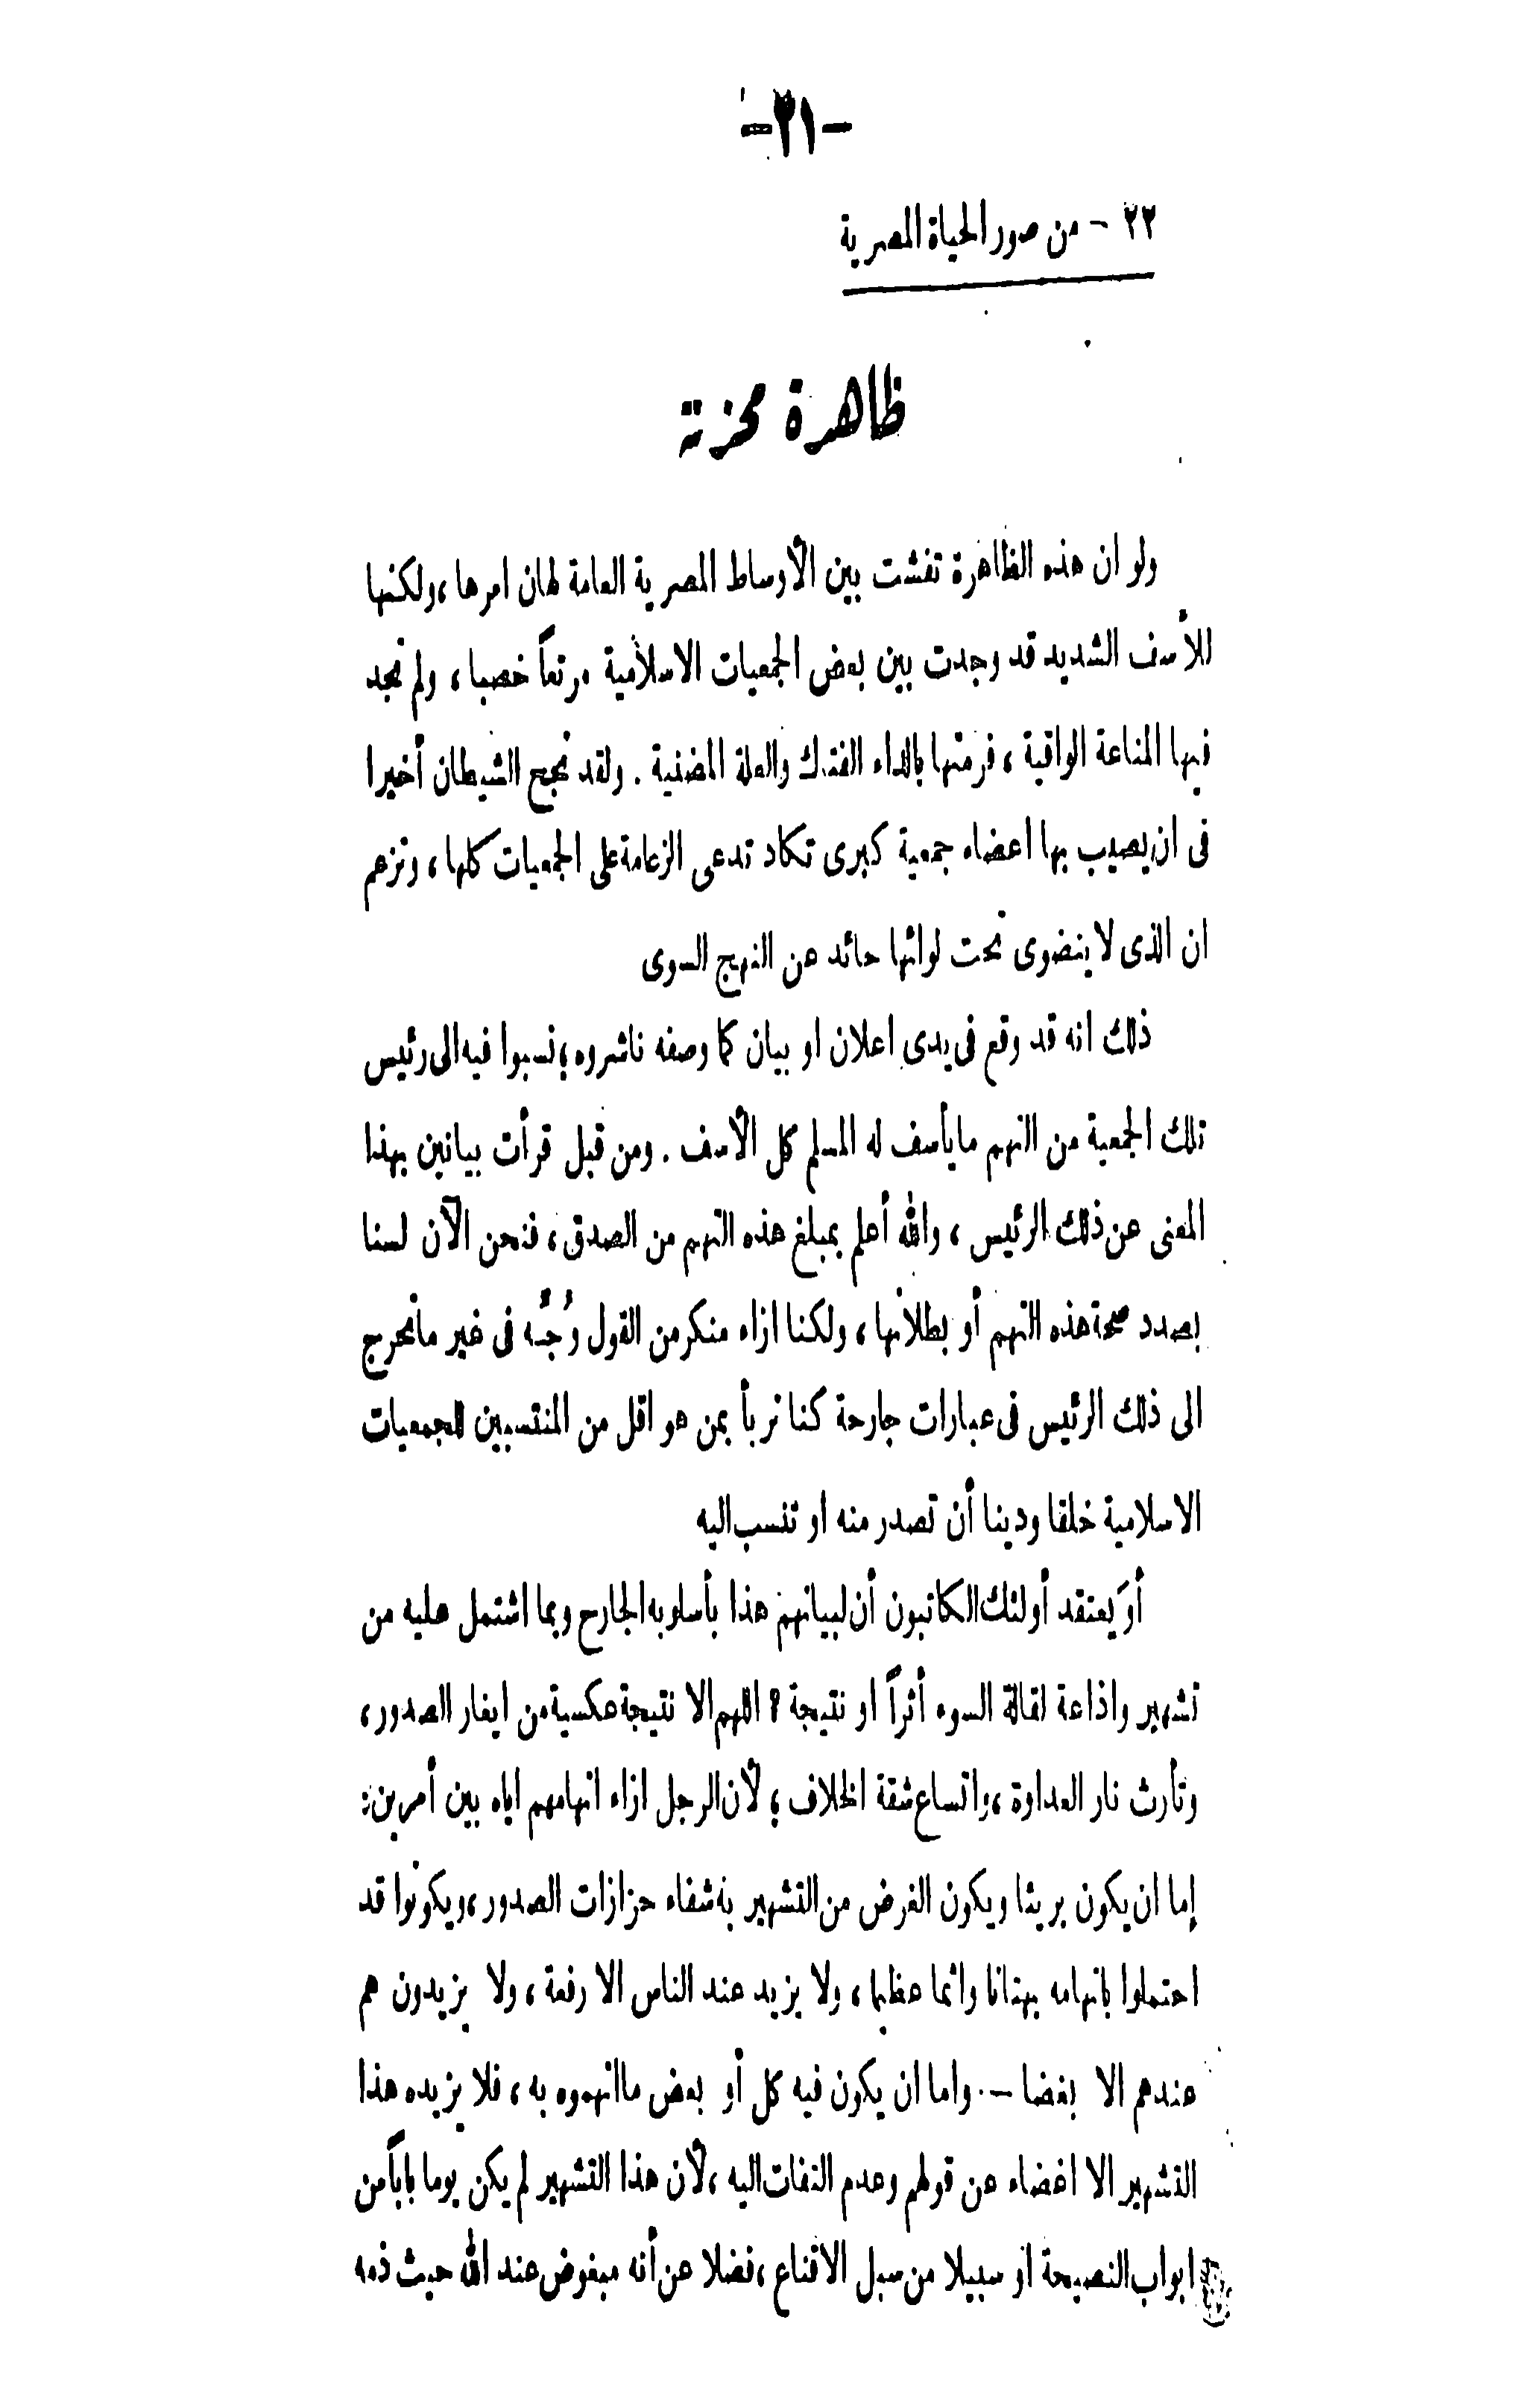 -٢١-
٢٢ - من صور الحياة المصرية
ظاهرة محزنة
ولو ان هذه الظاهرة تفشت بين الأوساط المصرية العامة لهان امرها ، ولكنها
للأسف الشديد قد وجدت بين بعض الجمعيات الاسلامية مرتعاً خصبا ، ولم تجد
فيها المناعة الواقية ، فرمتها بالداء الفتاك والعلة المضنية . ولقد نجح الشيطان أخيرا
فى ان يصيب بها اعضاء جمعية كبرى تكاد تدعى الزعامة على الجمعيات كلها ، وتزعم
ان الذى لا ينضوى تحت لوائها حائد عن النهج السوى
ذلك انه قد وقع فى يدى اعلان او بيان كما وصفه ناشروه ؛ نسبوا فيه الى رئيس
تلك الجمعية من التهم ما يأسف له المسلم كل الأسف . ومن قبل قرأت بيانين بهذا
المعنى عن ذلك الرئيس ، والله أعلم بمبلغ هذه التهم من الصدق ، فنحن الآن لسنا
بصدد صحة هذه التهم أو بطلانها ، ولكنا ازاء منكر من القول وُجِّه فى غير ما تحرج
الى ذلك الرئيس فى عبارات جارحة كنا نربأ بمن هو اقل من المنتسبين للجمعيات
الاسلامية خلقا ودينا أن تصدر منه او تنسب اليه
أوَ يعتقد أولئك الكاتبون أن لبيانهم هذا بأسلوبه الجارح وبما اشتمل عليه من
تشهير واذاعة لقالة السوء أثراً او نتيجة ؟ اللهم الا نتيجة عكسية من ايغار الصدور ،
وتأرث نار العداوة ، واتساع شقة الخلاف ؛ لأن الرجل ازاء اتهامهم اياه بين أمرين :
إما ان يكون بريئا ويكون الغرض من التشهير به شفاء حزازات الصدور ، ويكونوا قد
احتملوا باتهامه بهتانا واثما عظيما ، ولا يزيد عند الناس الا رفعة ، ولا يزيدون هم
عندهم الا بغضا - . واما ان يكون فيه كل أو بعض ما اتهموه به ، فلا يزيده هذا
التشهير الا اغضاء عن قولهم وعدم التفات اليه ، لأن هذا التشهير لم يكن يوما باباً من
ابواب النصيحة أو سبيلا من سبل الاقناع ، فضلا عن أنه مبغوض عند الله حيث ذمه